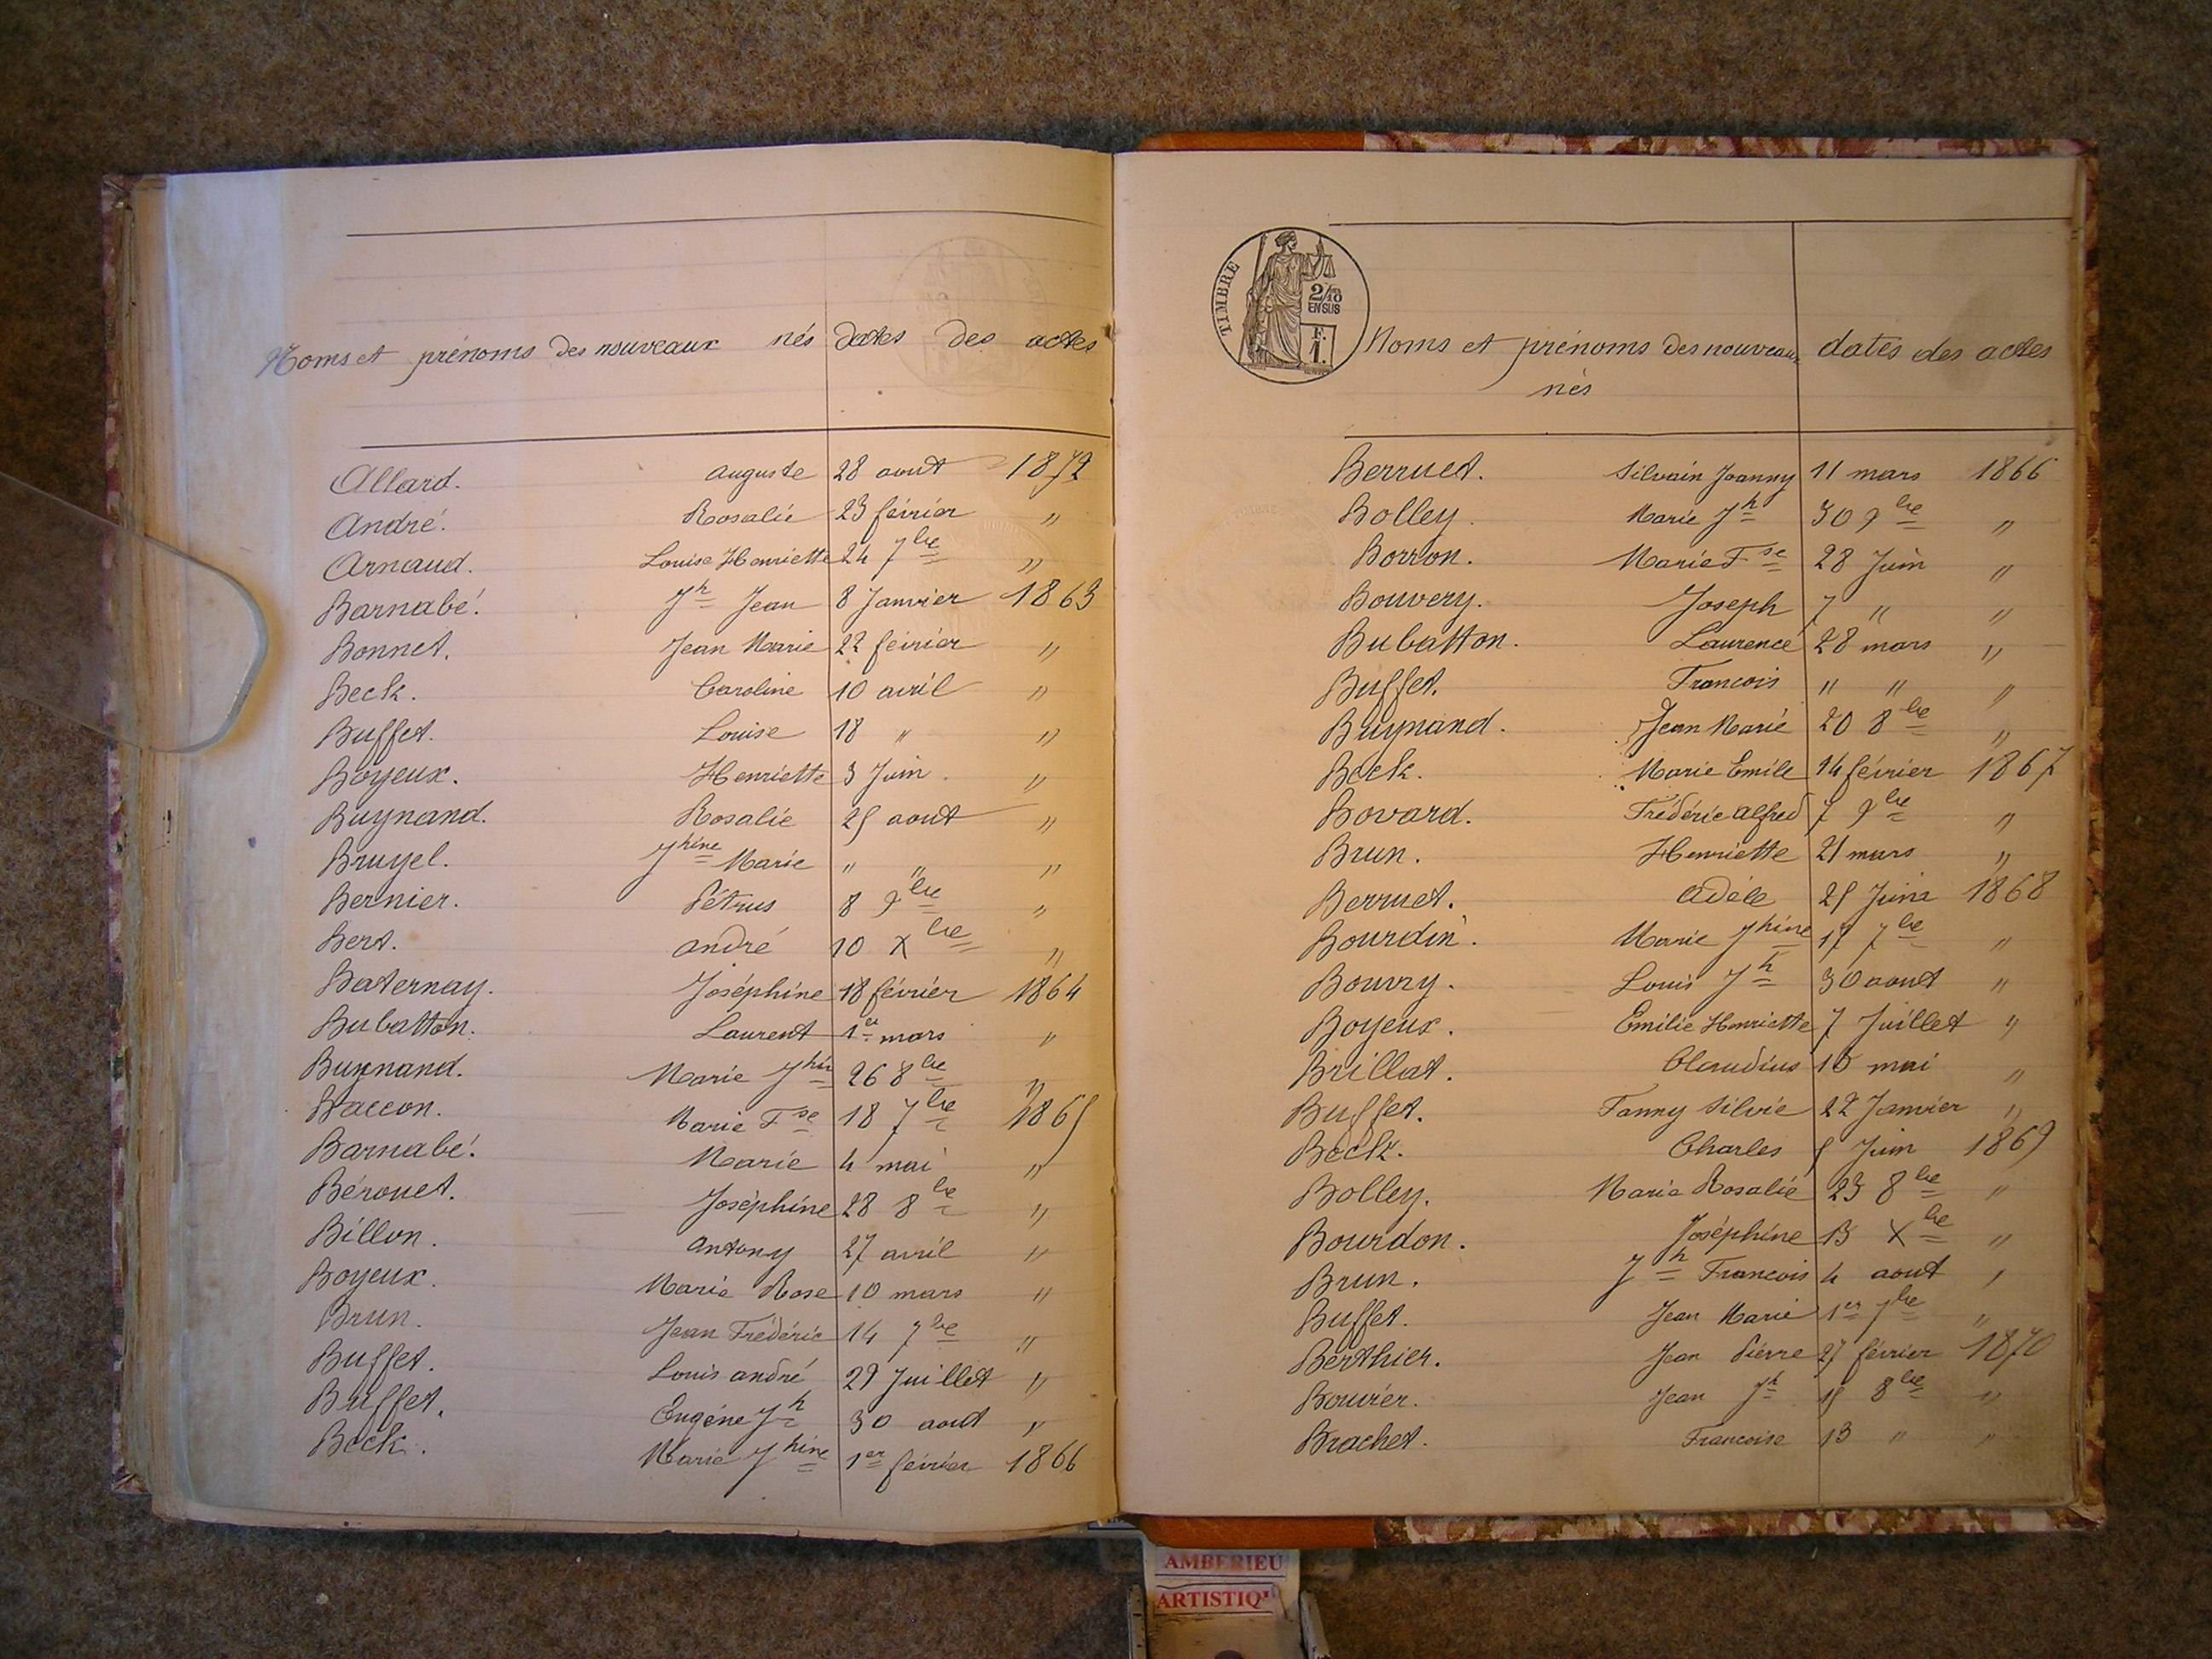 Noms et prénoms des nouveaux nés dates des actes
Allard. auguste 28 aout 1872
André. Rosalie 23 février "
Arnaud. Louise Henriette 24 7bre "
Barnabé. Jh Jean 8 Janvier 1863
Bonnet. Jean Marie 22 février "
Beck. Caroline 10 avril "
Buffet. Louise 18 " "
Boyeux. Henriette 3 Juin "
Buynand. Rosalie 25 aout "
Bruyel. Jhine Marie " " "
Bernier. Pétrus 8 9bre "
Bert. andré 10 Xbre "
Baternay. Joséphine 18 février 1864
Bubatton. Laurent 1er mars "
Buynand. Marie Jhin 26 8bre "
Baccon. Marie Fse 18 7bre 1865
Barnabé. Marie 4 mai "
Bérouet. Joséphine 28 8bre "
Billon. antony 27 avril "
Boyeux. Marie Rose 10 mars "
Brun. Jean Frédéric 14 7bre "
Buffet. Louis andré 29 Juillet "
Buffet. Eugéne Jh 30 aout "
Beck. Marie Jhine 1er février 1866
TIMBRE
2/10
EN SUS
F.
1.
Noms et prénoms des nouveaux dates des actes
nés
Berruet. Silvain Joanny 11 mars 1866
Bolley. Marie Jh 30 9bre "
Borron. Marie Fse 28 Juin "
Bouvery. Joseph 7 " "
Bubatton. Laurence 28 mars "
Buffet. Francois " " "
Buynand. Jean Marie 20 8bre "
Beck. Marie Emile 14 février 1867
Bovard. Frédéric alfred 7 9bre "
Brun. Henriette 21 mars "
Berruet. adéle 25 Juin 1868
Bourdin. Marie Jhine 17 7bre "
Bouvry. Louis Jh 30 aout "
Boyeux. Emilie Henriette 7 Juillet "
Brillat. Claudius 16 mai "
Buffet. Fanny Silvie 22 Janvier "
Beck. Charles 5 Juin 1869
Bolley. Marie Rosalie 23 8bre "
Bourdon. Joséphine 13 Xbre "
Brun. Jh Francois 4 aout "
Buffet. Jean Marie 1er 7bre "
Berthier. Jean Pierre 27 février 1870
Bouvier. Jean Jh 15 8bre "
Brachet. Francoise 13 " "
AMBERIEU
ARTISTIQ